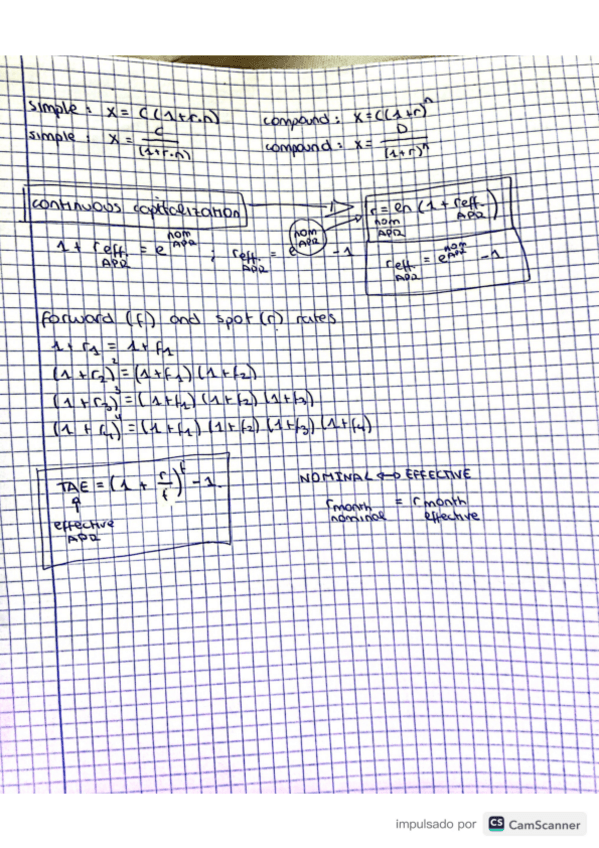 simple: x = C(1+r.n)    compound: x=C(1+r)^n
simple: x = C/(1+r.n)    compound: x= D/(1+r)^n
continuous capitalization → r nom APR = en (1 + r eff. APR)
1 + r eff. APR = e^nom APR ; r eff. APR = e^nom APR - 1    r eff. APR = e^nom APR - 1
forward (f) and spot (r) rates
1 + r1 = 1 + f1
(1 + r2)^2 = (1+f1) (1+f2)
(1 + r3)^3 = (1+f1) (1+f2) (1+f3)
(1 + r4)^4 = (1+f1) (1+f2) (1+f3) (1+f4)
TAE = (1 + r/f)^f - 1    NOMINAL ↔ EFFECTIVE
effective APR    r month nominal = r month effective
impulsado por CS CamScanner